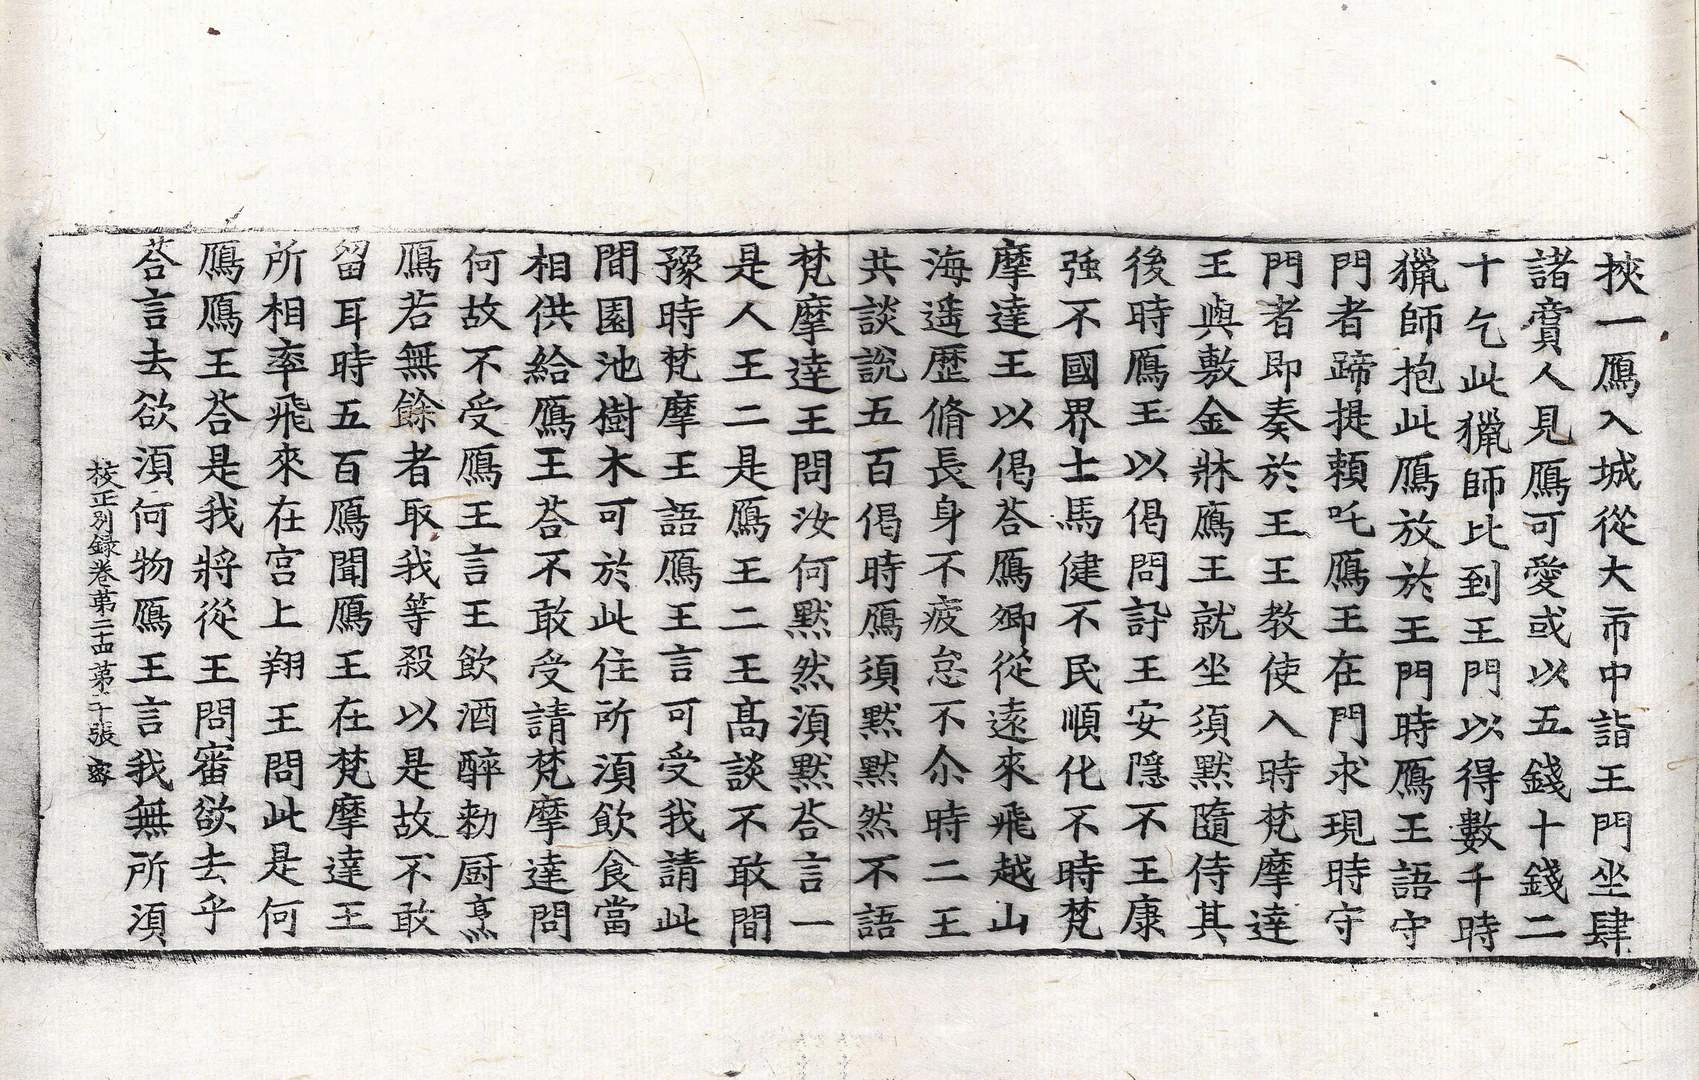 挾一鴈入城從大市中詣王門坐肆
諸賣人見鴈可愛或以五錢十錢二
十乞此獵師比到王門以得數千時
獵師抱此鴈放於王門時鴈王語守
門者蹄提賴吒鴈王在門求現時守
門者即奏於王王教使入時梵摩達
王與敷金牀鴈王就坐須默隨侍其
後時鴈王以偈問訃王安隱不王康
強不國界士馬健不民順化不時梵
摩達王以偈荅鴈卿從遠來飛越山
海遥歷脩長身不疲怠不尒時二王
共談說五百偈時鴈須默默然不語
梵摩達王問汝何默然湏默荅言一
是人王二是鴈王二王高談不敢間
豫時梵摩王語鴈王言可受我請此
間園池樹木可於此住所湏飲食當
相供給鴈王荅不敢受請梵摩達問
何故不受鴈王言王飲酒醉勑厨烹
鴈若無餘者取我等殺以是故不敢
留耳時五百鴈聞鴈王在梵摩達王
所相率飛來在宮上翔王問此是何
鴈鴈王荅是我將從王問審欲去乎
荅言去欲湏何物鴈王言我無所湏
校正別録卷苐二十四苐十張